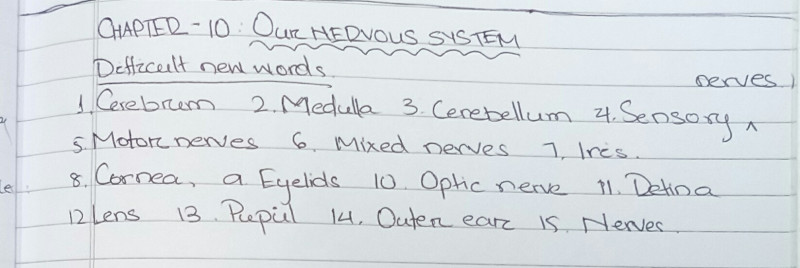 CHAPTER-10: Our NERVOUS SYSTEM
Difficult new words
1. Cerebrum 2. Medulla 3. Cerebellum 4. Sensory nerves
5. Motor nerves 6. Mixed nerves 7. Iris.
8. Cornea, 9. Eyelids 10. Optic nerve 11. Retina
12 Lens 13. Pupil 14. Outer ear 15. Nerves.